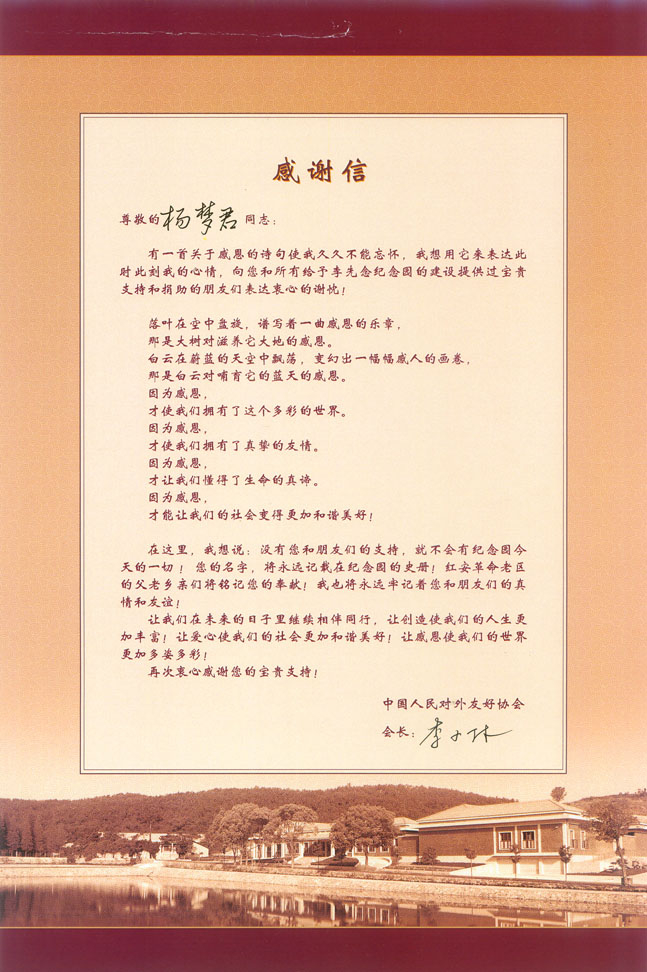 感谢信
尊敬的杨梦君同志：
有一首关于感恩的诗句使我久久不能忘怀，我想用它来表达此
时此刻我的心情，向您和所有给予李先念纪念园的建设提供过宝贵
支持和捐助的朋友们表达衷心的谢忱！
落叶在空中盘旋，谱写着一曲感恩的乐章，
那是大树对滋养它大地的感恩。
白云在蔚蓝的天空中飘荡，变幻出一幅幅感人的画卷，
那是白云对哺育它的蓝天的感恩。
因为感恩，
才使我们拥有了这个多彩的世界。
因为感恩，
才使我们拥有了真挚的友情。
因为感恩，
才让我们懂得了生命的真谛。
因为感恩，
才能让我们的社会变得更加和谐美好！
在这里，我想说：没有您和朋友们的支持，就不会有纪念园今
天的一切！您的名字，将永远记载在纪念园的史册！红安革命老区
的父老乡亲们将铭记您的奉献！我也将永远牢记着您和朋友们的真
情和友谊！
让我们在未来的日子里继续相伴同行，让创造使我们的人生更
加丰富！让爱心使我们的社会更加和谐美好！让感恩使我们的世界
更加多姿多彩！
再次衷心感谢您的宝贵支持！
中国人民对外友好协会
会长：李小林